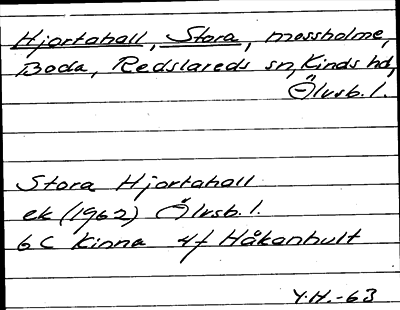 Hjortahall, Stora, mossholme,
Boda, Redslareds sn, Kinds hd,
Älvsb. l.
Stora Hjortahall
ek (1962) Älvsb. l.
6 C Kinna 4f Håkanhult
Y.H.-63